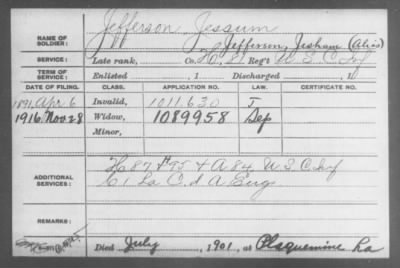 Jefferson, Jessum
NAME OF SOLDIER:
Jefferson, Jesham (Alias)
SERVICE: Late rank, Co. Reg't U.S.C. Inf
TERM OF SERVICE: Enlisted , 1 Discharged , 1
DATE OF FILING. CLASS. APPLICATION NO. LAW. CERTIFICATE NO.
1891 Apr 6 Invalid, 1011.630 J
1916 Nov 28 Widow, 1089958 Dep
Minor,
ADDITIONAL SERVICES: H 87 + 95 + A 84 U S C Inf
C 1 La C. d A Eng
REMARKS:
Died July , 1901, at Plaquemine La